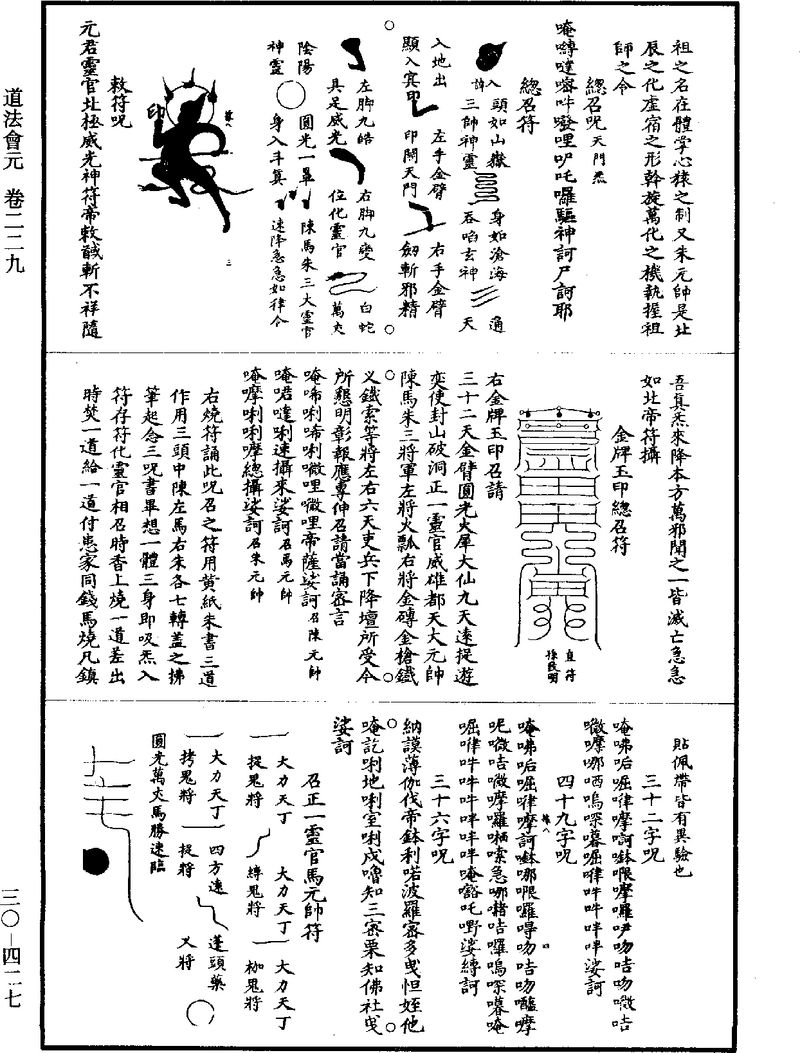 道法會元 卷二二九
三〇—四二七
祖之名在體掌心猿之制又朱元帥是北
辰之化虛宿之形斡旋萬化之機執握祖
師之令
總召呪天門炁
唵嚩噠 吽 哩 吒囉驅神訶尸訶耶
總召符
入 頭如山嶽 身如滄海 通
三帥神靈 吞啗玄神 天
入地出 左手金臂 右手金臂
顯入賓印 印開天門 劒斬邪精
左脚九皓 右脚九變 白蛇
具足威光 位化靈官 萬火
陰陽 圓光一暈 陳馬朱三大靈官
神靈 身入斗箕 速降急急如律令
印
敕符呪
元君靈官北極威光神符帝敕馘斬不祥隨
吾真炁來降本方萬邪聞之一皆滅亡急急
如北帝符攝
金牌玉印總召符
直符
孫民明
右金牌玉印召請
三十二天金臂圓光火犀大仙九天遠捉遊
奕使封山破洞正一靈官威雄都天大元帥
陳馬朱三將軍左將火瓢右將金磚金槍鐵
义鐵索等將左右六天吏兵下降壇所受令
所懇明彰報應專伸召請當誦密言
唵唏唎唏唎微哩微哩帝薩娑訶召陳元帥
唵啱噠唎速攝來娑訶召馬元帥
唵嚤唎唎嚤總攝娑訶召朱元帥
右燒符誦此呪召之符用黃紙朱書三道
作用三頭中陳左馬右朱各七轉蓋之拂
筆起念三呪書畢想一體三身即吸炁入
符存符化靈官相召時香上燒一道差出
時焚一道給一道付患家同錢馬燒凡鎮
貼佩帶皆有異驗也
三十二字呪
唵咈㖃堀㖀摩訶鉢哏摩羅尹吻咭吻微咭
微摩哪哂嗚㗭暮堀㖀吽吽吽吽娑訶
四十九字呪
唵咈㖃堀㖀摩訶鉢哪哏囉㖂吻咭吻醯摩
呢微咭微摩羅 㗭急哪 咭囉嗚㗭暮唵
堀㖀吽吽吽吽吽吽唵 吒嘢娑縛訶
三十六字呪
納謨薄伽伐帝鉢利喏波羅密多曳怛姪他
唵訖唎地唎室唎戍嚕知三密栗知佛社曳
娑訶
召正一靈官馬元帥符
大力天丁 大力天丁 大力天丁
捉鬼將 縛鬼將 枷鬼將
大力天丁 四方遠 蓬頭藥
拷鬼將 捉將 义將
圓光萬火馬勝速臨